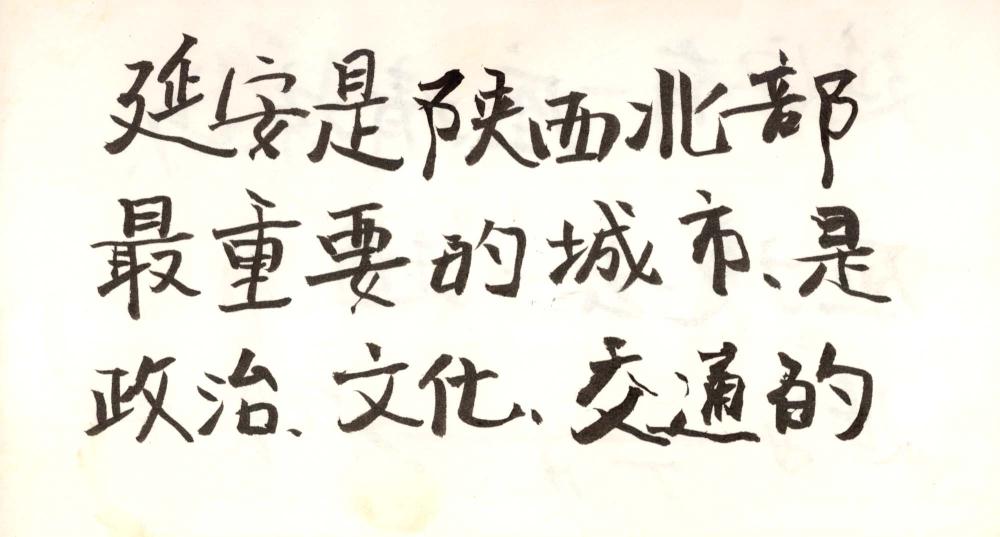 延安是陕西北部
最重要的城市、是
政治、文化、交通的